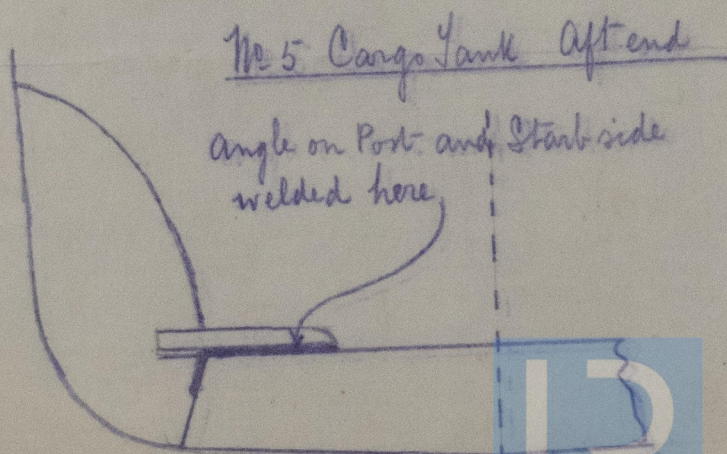 No 5 Cargo Tank Aft end
angle on Port and Starb side
welded here